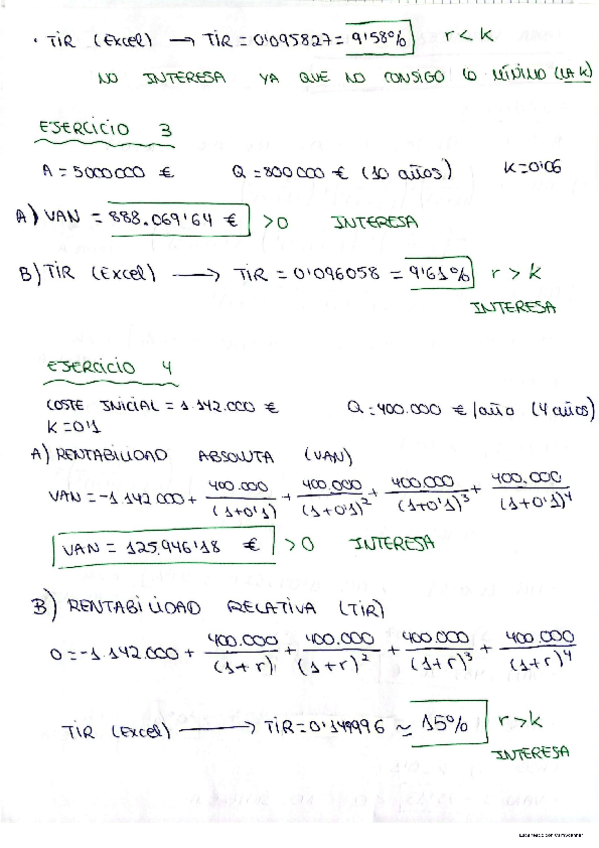 · TIR (Excel) → TIR = 0'095827 = 9'58% r < k
NO INTERESA YA QUE NO CONSIGO LO MÍNIMO (LA K)
EJERCICIO 3
A = 5000000 € Q = 800000 € (10 años) K=0'06
A) VAN = 888.069'64 € >0 INTERESA
B) TIR (Excel) → TIR = 0'096058 = 9'61% r > k
INTERESA
EJERCICIO 4
COSTE INICIAL = 1.142.000 € Q = 400.000 €/año (4 años)
K = 0'1
A) RENTABILIDAD ABSOLUTA (VAN)
VAN = -1.142.000 + 400.000/(1+0'1) + 400.000/(1+0'1)² + 400.000/(1+0'1)³ + 400.000/(1+0'1)⁴
VAN = 125.946'18 € >0 INTERESA
B) RENTABILIDAD RELATIVA (TIR)
0 = -1.142.000 + 400.000/(1+r) + 400.000/(1+r)² + 400.000/(1+r)³ + 400.000/(1+r)⁴
TIR (Excel) → TIR = 0'149996 ≃ 15% r>k
INTERESA